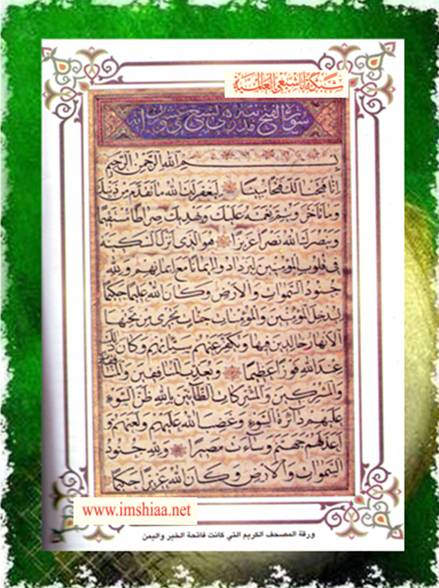 شبكة الشيعة العالمية
سورة الفتح مدنية وهي تسع وعشرون آية
بسم الله الرحمن الرحيم
اِنَّا فَتَحْنَا لَكَ فَتْحًا مُبِينًا لِيَغْفِرَ لَكَ اللهُ مَا تَقَدَّمَ مِنْ ذَنْبِكَ
وَمَا تَأَخَّرَ وَيُتِمَّ نِعْمَتَهُ عَلَيْكَ وَيَهْدِيَكَ صِرَاطًا مُسْتَقِيمًا
وَيَنْصُرَكَ اللهُ نَصْرًا عَزِيزًا هُوَ الَّذِى اَنْزَلَ السَّكِينَةَ
فِى قُلُوبِ الْمُؤْمِنِينَ لِيَزْدَادُوا اِيمَانًا مَعَ اِيمَانِهِمْ وَلِلّٰهِ
جُنُودُ السَّمٰوَاتِ وَالْاَرْضِ وَكَانَ اللهُ عَلِيمًا حَكِيمًا
لِيُدْخِلَ الْمُؤْمِنِينَ وَالْمُؤْمِنَاتِ جَنَّاتٍ تَجْرِى مِنْ تَحْتِهَا
الْاَنْهَارُ خَالِدِينَ فِيهَا وَيُكَفِّرَ عَنْهُمْ سَيِّئَاتِهِمْ وَكَانَ ذٰلِكَ
عِنْدَ اللهِ فَوْزًا عَظِيمًا وَيُعَذِّبَ الْمُنَافِقِينَ وَالْمُنَافِقَاتِ
وَالْمُشْرِكِينَ وَالْمُشْرِكَاتِ الظَّانِّينَ بِاللهِ ظَنَّ السَّوْءِ
عَلَيْهِمْ دَائِرَةُ السَّوْءِ وَغَضِبَ اللهُ عَلَيْهِمْ وَلَعَنَهُمْ وَ
اَعَدَّ لَهُمْ جَهَنَّمَ وَسَاءَتْ مَصِيرًا وَلِلّٰهِ جُنُودُ
السَّمٰوَاتِ وَالْاَرْضِ وَكَانَ اللهُ عَزِيزًا حَكِيمًا
www.imshiaa.net
ورقة المصحف الكريم التي كانت فاتحة الخير واليمن